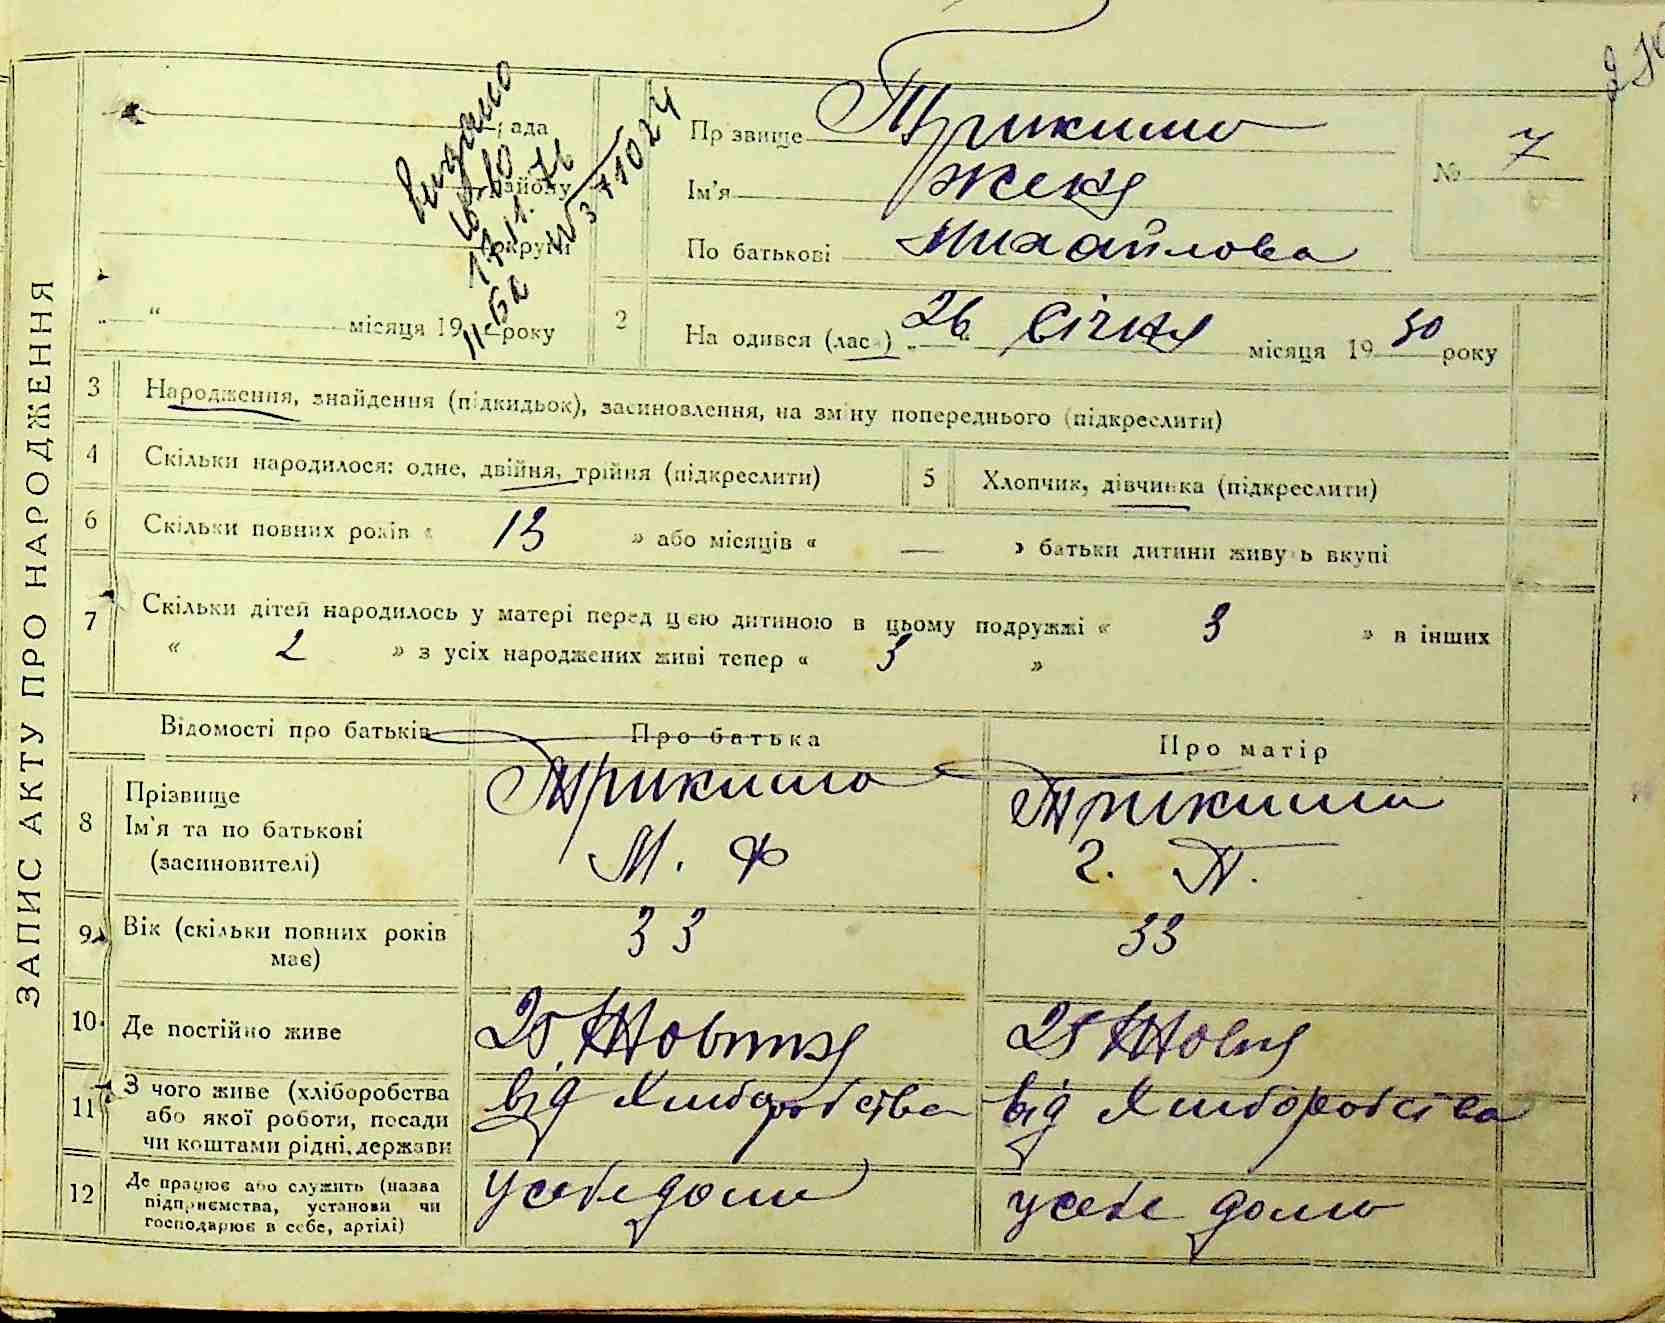 ЗАПИС АКТУ ПРО НАРОДЖЕННЯ
рада
району
округи
„ “ місяця 19 року
видано
17/1. 76
№ 371024
II-БА
Прізвище Трикишо
Ім'я Женя
По батькові Михайлова
№ 7
2 На одився (лася) „26 січня місяця 19 30 року
3 Народження, знайдення (підкидьок), засиновлення, на зміну попереднього (підкреслити)
4 Скільки народилося: одне, двійня, трійня (підкреслити)
5 Хлопчик, дівчинка (підкреслити)
6 Скільки повних років « 13 » або місяців « — » батьки дитини живуть вкупі
7 Скільки дітей народилось у матері перед цією дитиною в цьому подружжі « 3 » в інших
« 2 » з усіх народжених живі тепер « 3 »
Відомості про батьків Про батька Про матір
8 Прізвище Трикишо Трикиша
Ім'я та по батькові М. Ф Г. П.
(засиновителі)
9 Вік (скільки повних років 33 33
має)
10. Де постійно живе 25 Жовтня 25 Жовтня
11 З чого живе (хліборобства від Хліборобства від Хліборобства
або якої роботи, посади
чи коштами рідні, держави
12 Де працює або служить (назва у себе дома у себе дома
підприємства, установи чи
господарює в себе, артілі)